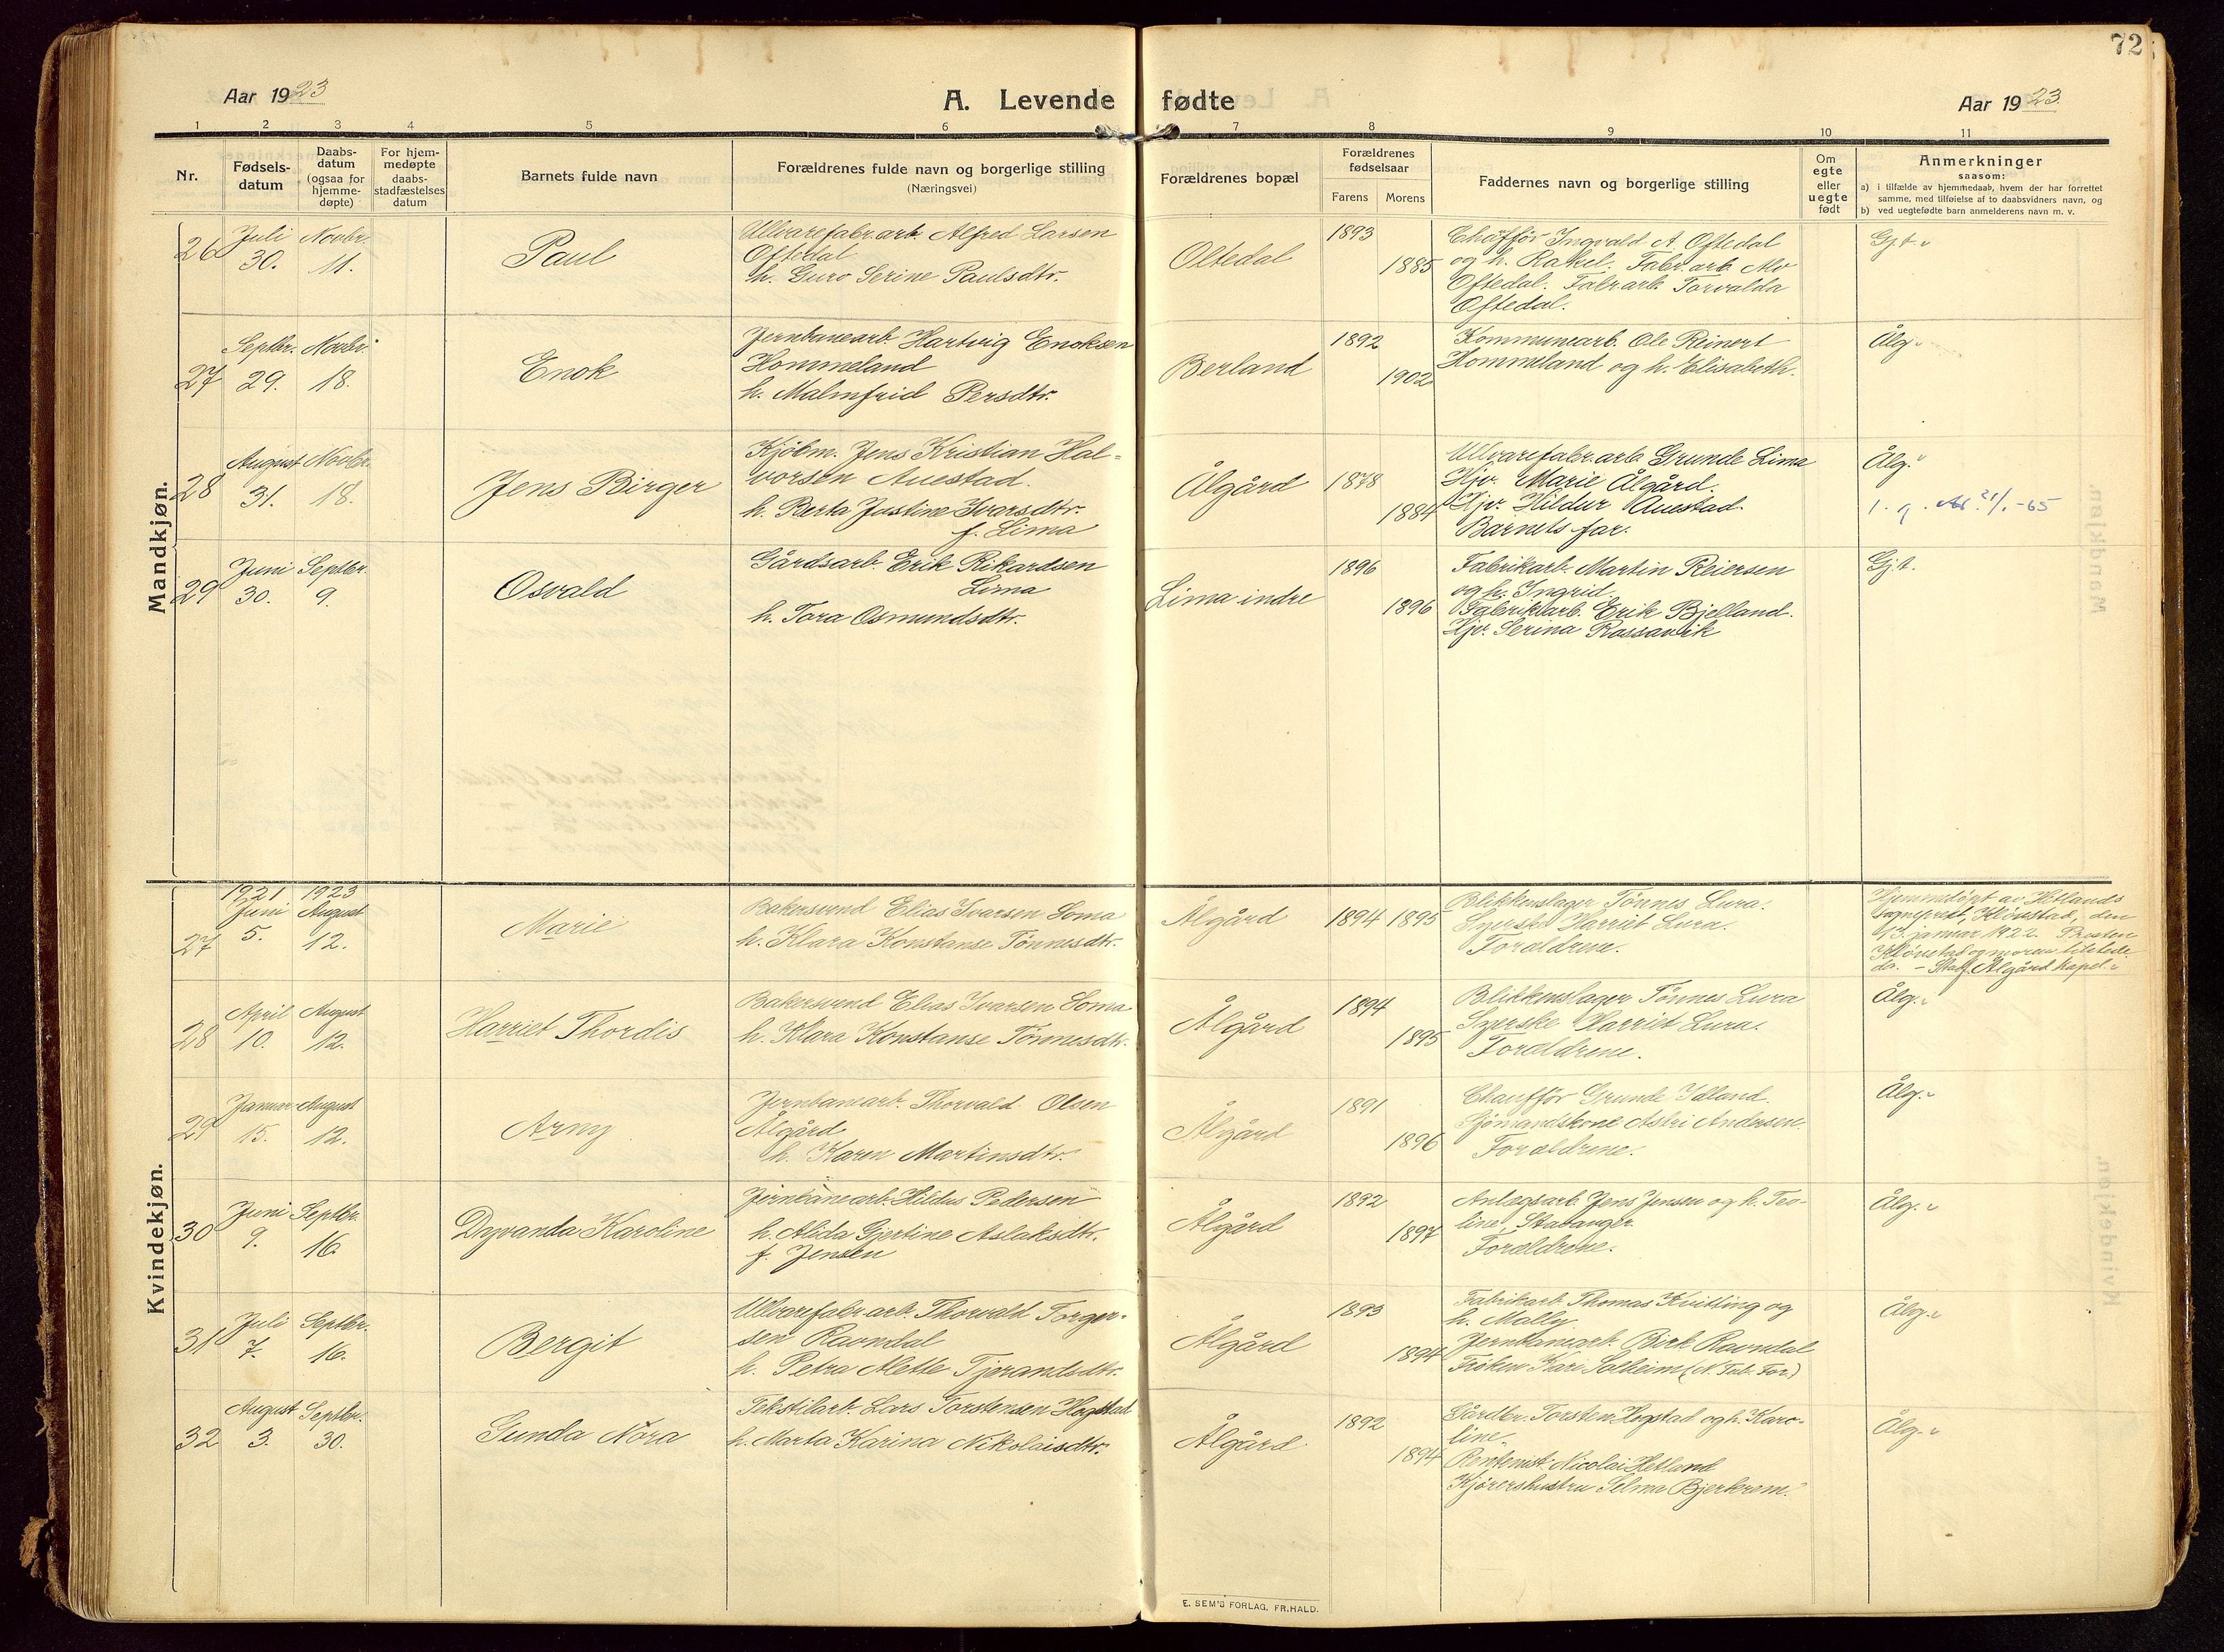 72
Aar 1923
A. Levende fødte
Aar 1923.
1 2 3 4 5 6 7 8 9 10 11
Nr.
Fødsels-
datum
Daabs-
datum
(ogsaa for
hjemme-
døpte)
For hjem-
medøpte
daabs-
stadfæstelses
datum
Barnets fulde navn
Forældrenes fulde navn og borgerlige stilling
(Næringsvei)
Forældrenes bopæl
Forældrenes
fødselsaar
Farens Morens
Faddernes navn og borgerlige stilling
Om
egte
eller
uegte
født
Anmerkninger
saasom:
a) i tilfælde av hjemmedaab, hvem der har forrettet
samme, med tilføielse av to daabsvidners navn, og
b) ved uegtefødte barn anmelderens navn m. v.
Mandkjøn.
26
Juli
30.
Novbr.
11.
Paul
Ullvarefabr.arb. Alfred Larsen
Oftedal
h. Guro Serine Paulsdtr.
Oltedal
1893
1885
Chaffør Ingvald A. Oftedal
og h. Rakel. Fabr.arb. Alv
Oftedal. Fabr.arb. Torvalda
Oftedal.
Gj.t.
27
Septbr.
29.
Novbr.
18.
Enok
Jernbanearb. Hartvig Enoksen
Hommeland
h. Malmfrid Persdtr.
Berland
1892
1902
Kommunearb. Ole Reinert
Hommeland og h. Elisabeth.
Ålg.
28
August
31.
Novbr.
18.
Jens Birger
Kjøbm. Jens Kristian Hal-
vorsen Auestad.
h. Berta Justine Ivarsdtr.
f. Lima
Ålgård
1878
1884
Ullvarefabr.arb. Grunde Lima
Hjv. Marie Ålgård.
Hjv. Hildur Auestad.
Barnets far.
Ålg.
29
Juni
30.
Septbr.
9.
Osvald
Gårdsarb. Erik Rikardsen
Lima
h. Tora Osmundsdtr.
Lima indre
1896
1896
Fabrikarb. Martin Reiersen
og h. Ingrid.
Fabrikkarb. Erik Bjelland.
Hjv. Serina Rossavik
Gj.t.
Kvindekjøn.
27
1921
Juni
5.
1923
August
12.
Marie
Bakersvend Elias Ivarsen Soma
h. Klara Konstanse Tönnesdtr.
Ålgård
1894 1895
Blikkenslager Tönnes Lura.
Syerske Harriet Lura.
Forældrene.
Hjemmedöpt av Hetlands
sogneprest, Klönstad, den
13. januar 1922. Presten
Klönstad og moren tilstede
der. - Stadf. Ålgård kapel.
28
April
10.
August
12.
Harriet Thordis
Bakersvend Elias Ivarsen Soma
h. Klara Konstanse Tönnesdtr.
Ålgård
1894
1895
Blikkenslager Tönnes Lura
Syerske Harriet Lura.
Forældrene.
Ålg.
29
Januar
15.
August
12.
Arny
Jernbanearb. Thorvald Olsen
Ålgård
h. Karen Martinsdtr.
Ålgård
1891
1896
Chauffør Grunde Idland.
Sjömandskone Astri Andersen.
Forældrene.
Ålg.
30
Juni
9.
Septbr.
16.
Dyvanda Karoline
Jernbanearb. Hildus Pedersen
h. Alida Gjertine Aslaksdtr.
f. Jensen
Ålgård
1892
1897
Anlegsarb. Jens Jensen og h. Teo-
line, Stavanger.
Forældrene.
Ålg.
31
Juli
7.
Septbr.
16.
Bergit
Ullvarefabr.arb. Thorvald Torger-
sen Ravndal
h. Petra Alette Tjerandsdtr.
Ålgård
1893
1894
Fabrikarb. Thomas Kvitting og
h. Mally.
Jernbanearb. Birk Ravndal
Frøken Kari Solheim (N. Fab. For.)
Ålg.
32
August
3.
Septbr.
30.
Gunda Nora
Tekstilarb. Lars Torstensen Hogstad
h. Marta Karina Nikolaisdtr.
Ålgård
1892
1894
Gårdbr. Torsten Hogstad og h. Karo-
line.
Rentenist Nicolai Hetland
Kjørershustru Selma Bjerkrem.
Ålg.
E. SEM'S FORLAG, FR.HALD.